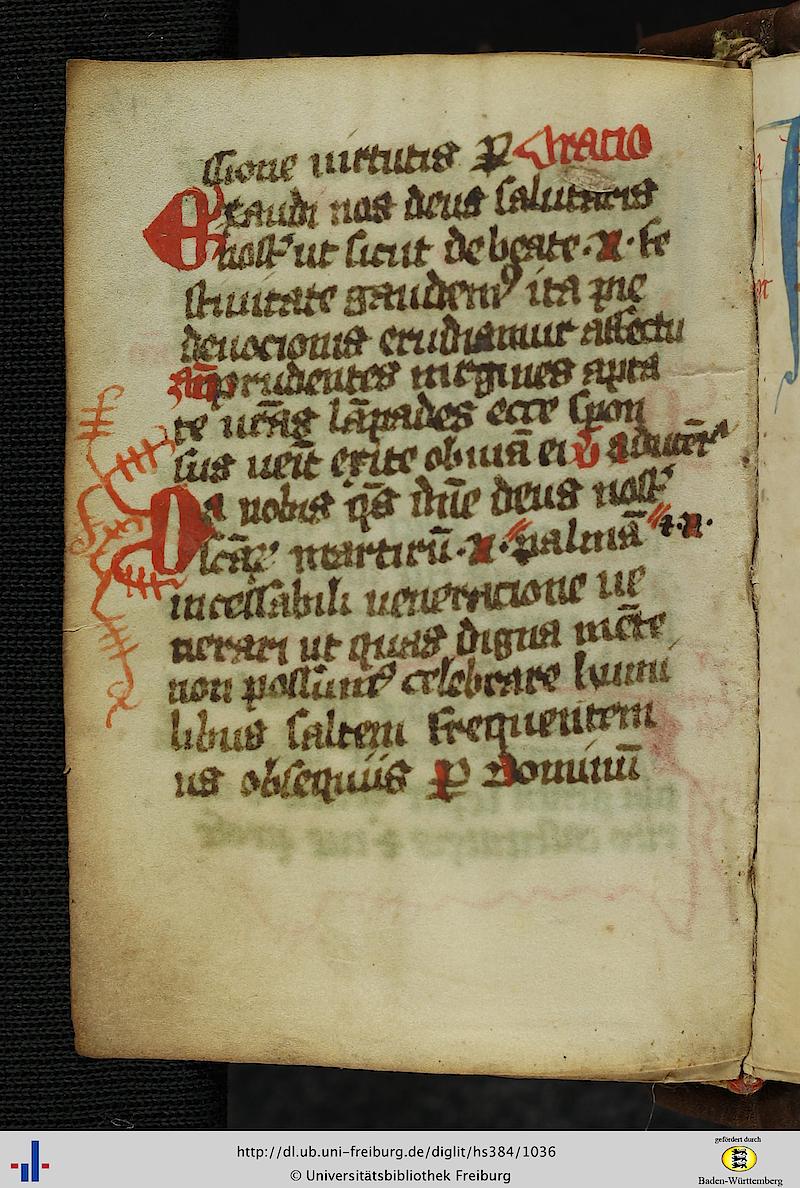 ssione uirtutis P Oracio
Exaudi nos deus salutaris
nost' ut sicut de beate · N · fe
stiuitate gaudem9 ita pie
deuocionis erudiamur affectu
prudentes uirgines apta
te ur̄as lāpades ecce spon
sus ueīt exite obuiā ei
Da nobis q̄s dn̄e deus nost'
martirū · N · palmā · N ·
incessabili ueneracione ue
nerari ut quas digna mēte
non possum9 celebrare humi
libus saltem frequentem
us obsequiis P Dominū
http://dl.ub.uni-freiburg.de/diglit/hs384/1036
© Universitätsbibliothek Freiburg
gefördert durch
Baden-Württemberg